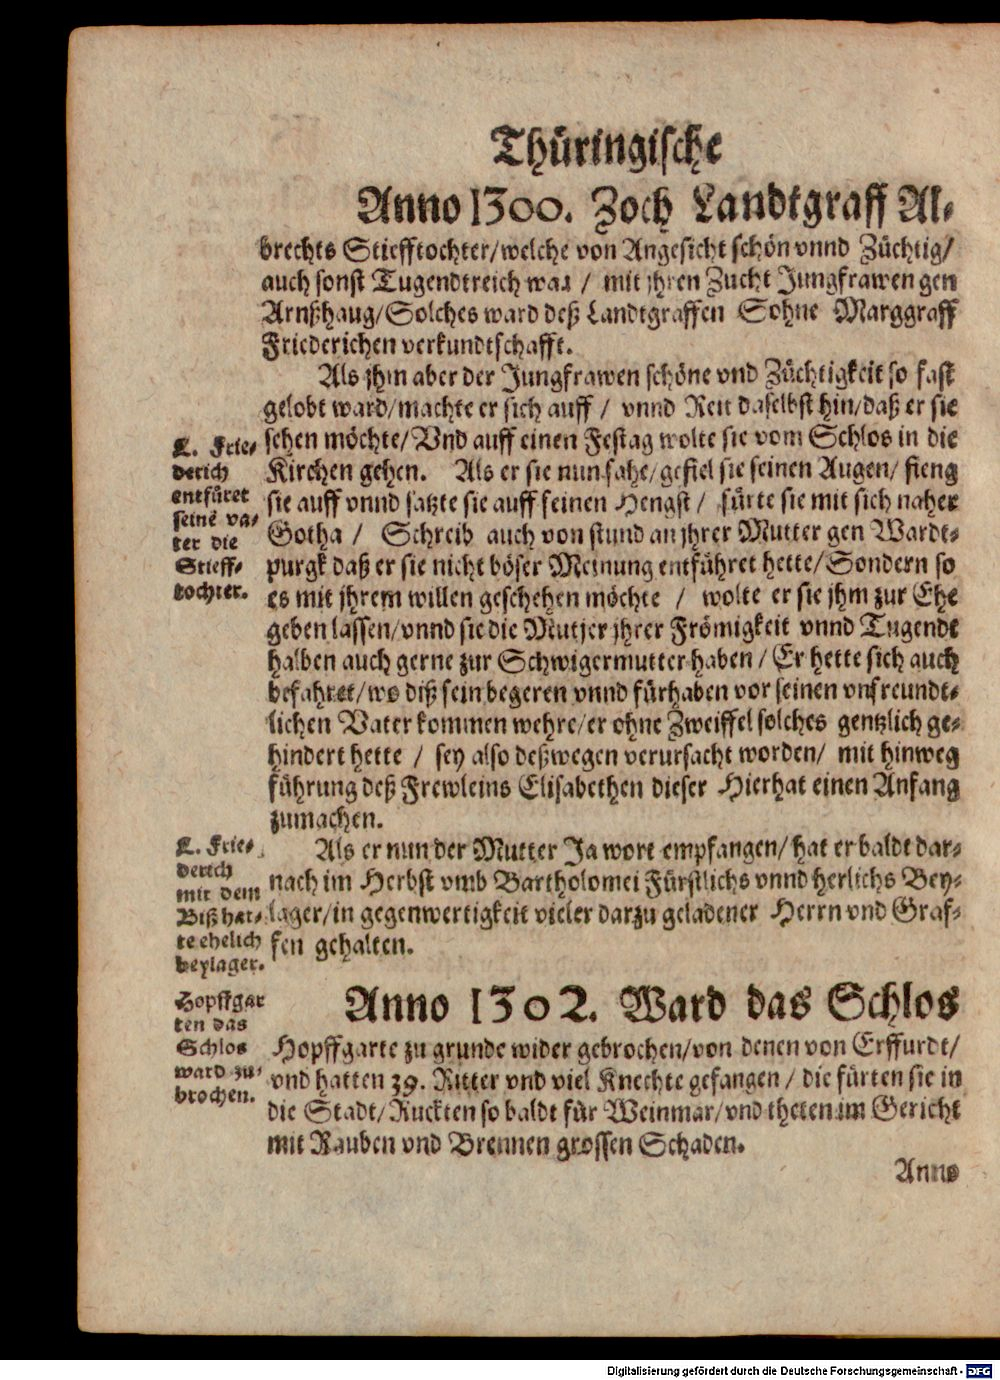 Thüringische
Anno 1300. Zoch Landtgraff Al-
brechts Stiefftochter/welche von Angesicht schön vnnd Züchtig/
auch sonst Tugendtreich war / mit jhren Zucht Jungfrawen gen
Arnßhaug/Solches ward deß Landtgraffen Sohne Marggraff
Friederichen verkundtschafft.
Als jhm aber der Jungfrawen schöne vnd Züchtigkeit so fast
gelobt ward/machte er sich auff / vnnd Reit daselbst hin/daß er sie
sehen möchte/Vnd auff einen Festag wolte sie vom Schlos in die
Kirchen gehen. Als er sie nun sahe/gefiel sie seinen Augen/ fieng
sie auff vnnd satzte sie auff seinen Hengst / fürte sie mit sich naher
Gotha / Schreib auch von stund an jhrer Mutter gen Wardt-
purgk daß er sie nicht böser Meinung entführet hette/Sondern so
es mit jhrem willen geschehen möchte / wolte er sie jhm zur Ehe
geben lassen/vnnd sie die Mutter jhrer Frömigkeit vnnd Tugendt
halben auch gerne zur Schwigermutter haben / Er hette sich auch
befahret/wo diß sein begeren vnnd fürhaben vor seinen vnfreundt-
lichen Vater kommen wehre/er ohne Zweiffel solches gentzlich ge-
hindert hette / sey also deßwegen verursacht worden/ mit hinweg
führung deß Frewleins Elisabethen dieser Hierhat einen Anfang
zumachen.
L. Frie-
derich
entfüret
seine va-
ter die
Stieff-
tochter.
Als er nun der Mutter Ja wort empfangen/ hat er baldt dar-
nach im Herbst vmb Bartholomei Fürstlichs vnnd herlichs Bey-
lager/in gegenwertigkeit vieler darzu geladener Herrn vnd Graf-
fen gehalten.
L. Frie-
derich
mit dem
Biß hat-
te ehelich
beylager.
Anno 1302. Ward das Schlos
Hopffgarte zu grunde wider gebrochen/von denen von Erffurdt/
vnd hatten 39. Ritter vnd viel Knechte gefangen / die fürten sie in
die Stadt/Ruckten so baldt für Weinmar/vnd theten im Gericht
mit Rauben vnd Brennen grossen Schaden.
Hopffgar
ten das
Schlos
ward zu-
brochen.
Anno
Digitalisierung gefördert durch die Deutsche Forschungsgemeinschaft - DFG